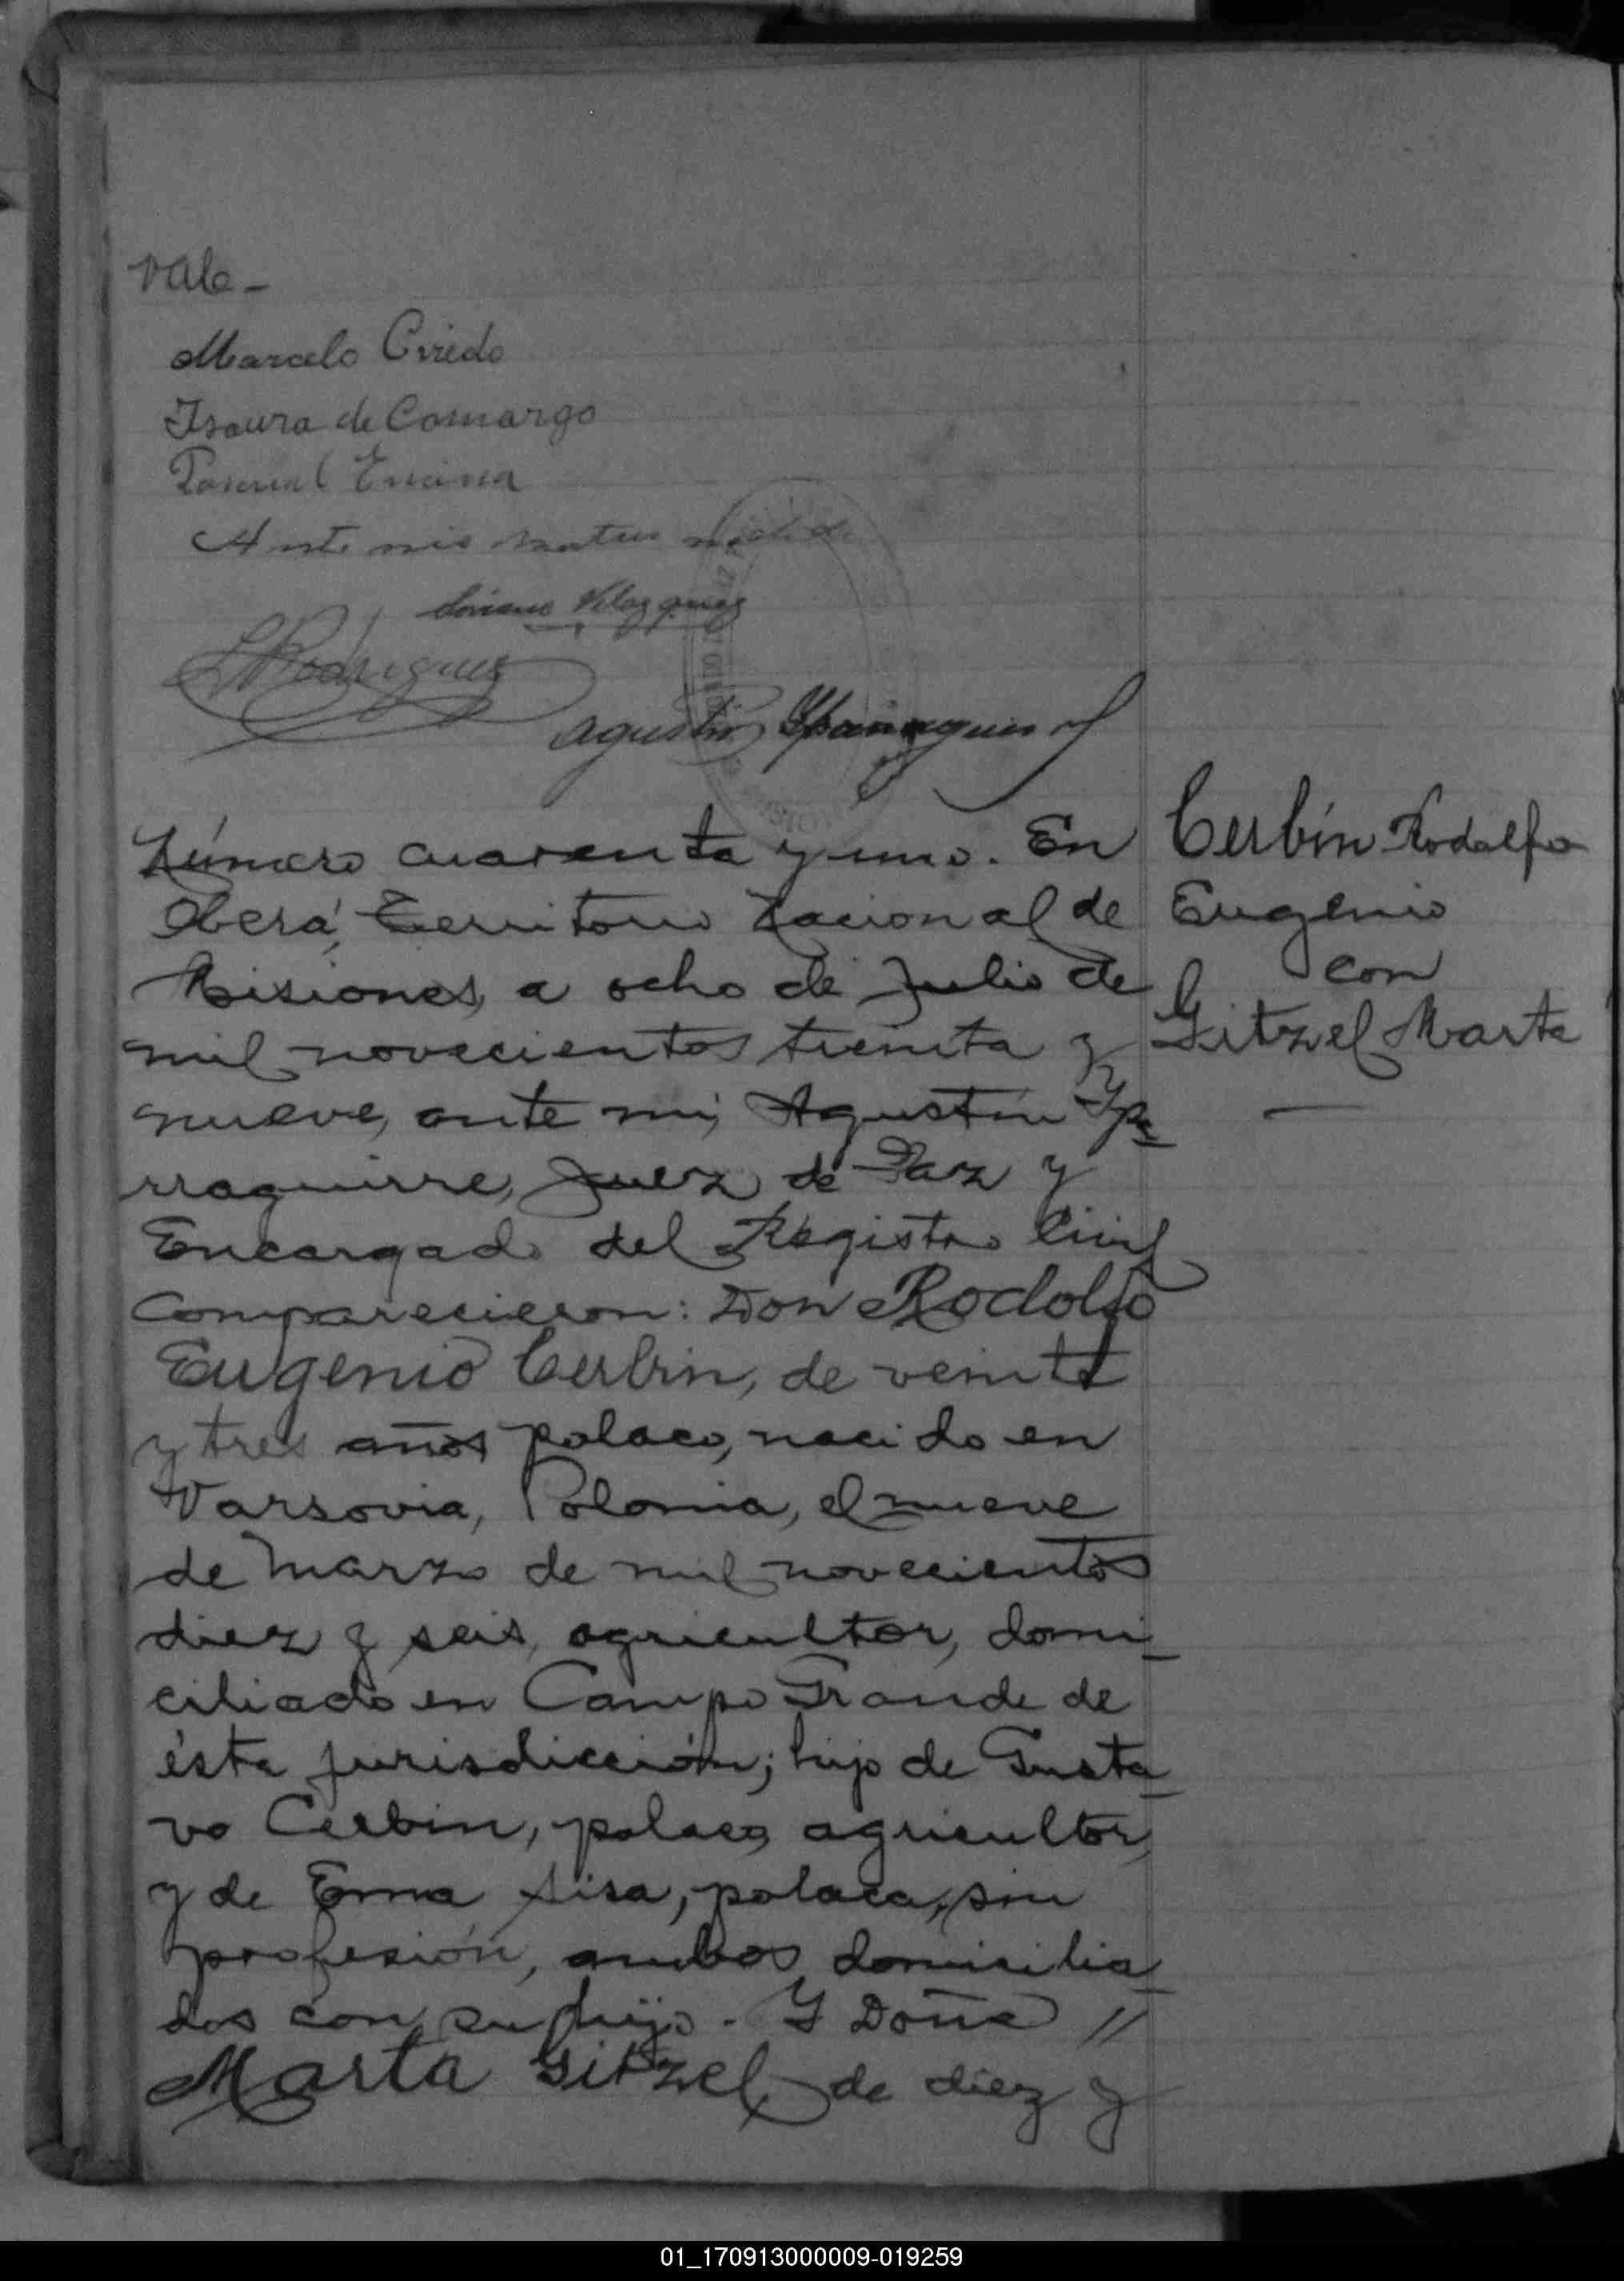 Vale-
Marcelo Oviedo
Isaura de Camargo
Pascual Encina
Antonio
Velazquez
LRodriguez
Agustin Yparraguirre
Número cuarenta y uno. En
Oberá, Territorio Nacional de
Misiones, a ocho de Julio de
mil novecientos treinta y
nueve, ante mi, Agustín Ypa
rraguirre, Juez de Paz y
Encargado del Registro Civil
comparecieron: Don Rodolfo
Eugenio Cerbin, de veinte
y tres años polaco, nacido en
Varsovia, Polonia, el nueve
de Marzo de mil novecientos
diez y seis, agricultor, domi-
ciliado en Campo Grande de
ésta jurisdicción; hijo de Gusta-
vo Cerbin, polaco, agricultor,
y de Erna Sisa, polaca, sin
profesión, ambos domicilia-
dos con su hijo. Y Doña //
Marta Gitzel, de diez y
Cerbín Rodolfo
Eugenio
con
Gitzel Marta
—
01_170913000009-019259